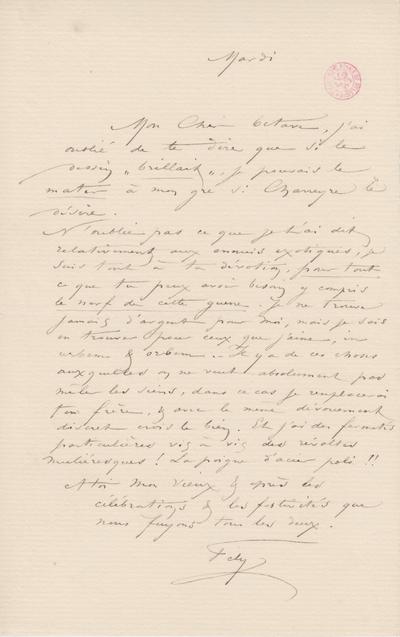 Mardi
Mon Cher Octave, j'ai
oublié de te dire que si le
dessin „brillait„, je pouvais le
mater à mon gré si Charreyre le
désire.
N'oublie pas ce que je t'ai dit
relativement aux ennuis exotiques, je
suis tout à ta dévotion, pour tout
ce que tu peux avoir besoin y compris
le nerf de cette guerre. Je ne trouve
jamais d'argent pour moi, mais je sais
en trouver pour ceux que j'aime, in
urbem & orbem.. Il y a de ces choses
auxquelles on ne veut absolument pas
mêler les siens, dans ce cas je remplacerai
ton frère, & avec le même dévouement
discret crois le bien. Et j'ai des fermetés
particulières vis à vis des révoltes
La poigne d'acier poli !!
A toi mon vieux & après les
célébrations & les festivités que
nous fuyons tous les deux.
Fély